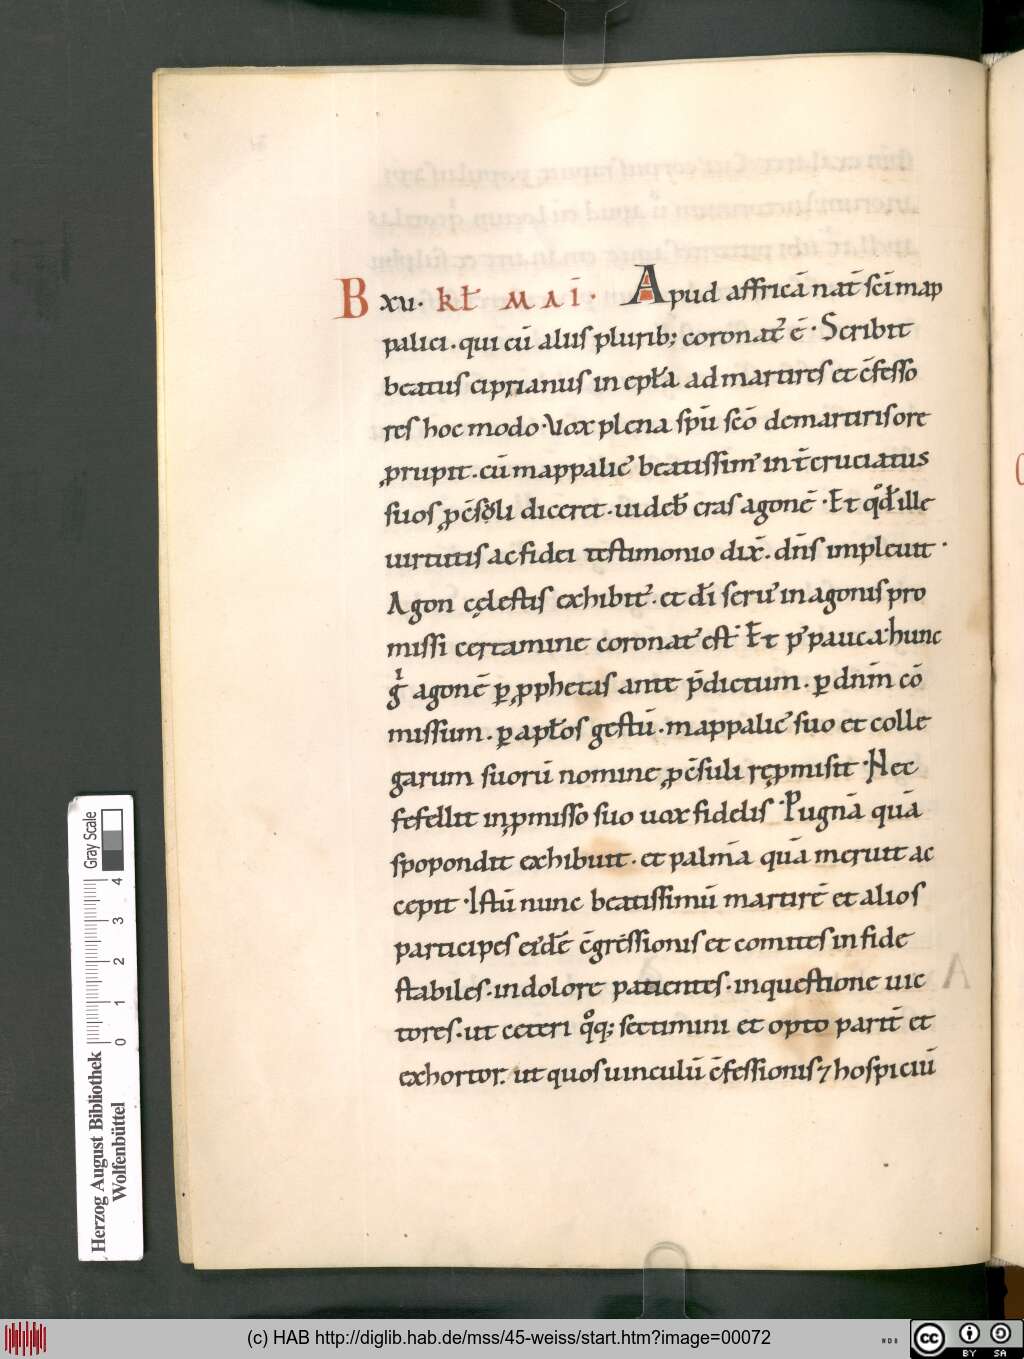 B xu. kł mai. Apud affricā nat̄ sc̄i map
palici. qui cū aliis plurib; coronat᷒ ē. Scribit
beatus ciprianus in epła ad martires et c̄fesso
res hoc modo. Vox plena sp̄u sc̄o de martiris ore
ꝓrupit. cū mappalic᷒ beatissim᷒ int̄ cruciatus
suos ꝓc̄soli diceret. uideb̄ cras agonē. Et qd̄ ille
uirtutis ac fidei testimonio dix̄. dn̄s impleuit.
Agon cęlestis exhibit᷒. et dī seru᷒ in agonis pro
missi certamine coronat᷒ est. Et p᷒ pauca. hunc
gͥ agonē ꝑ ꝓphetas ante p̄dictum. ꝑ dnm̄ cō
missum. ꝑ apłos gestū. mappalic᷒ suo et colle
garum suorū nomine ꝓc̄suli rępmisit. Nec
fefellit in ꝓmisso suo uox fidelis. Pugnā quā
spopondit exhibuit. et palmā quā meruit ac
cepit. Istū nunc beatissimū martirē et alios
participes ei᷒dē c̄gressionis et comites in fide
stabiles. in dolore patientes. in questione uic
tores. ut ceteri qͦq; sectimini et opto parit̄ et
exhortor. ut quos uinculū c̄fessionis ⁊ hospiciū
Herzog August Bibliothek
Wolfenbüttel
0 1 2 3 4
Gray Scale
(c) HAB http://diglib.hab.de/mss/45-weiss/start.htm?image=00072
cc BY SA